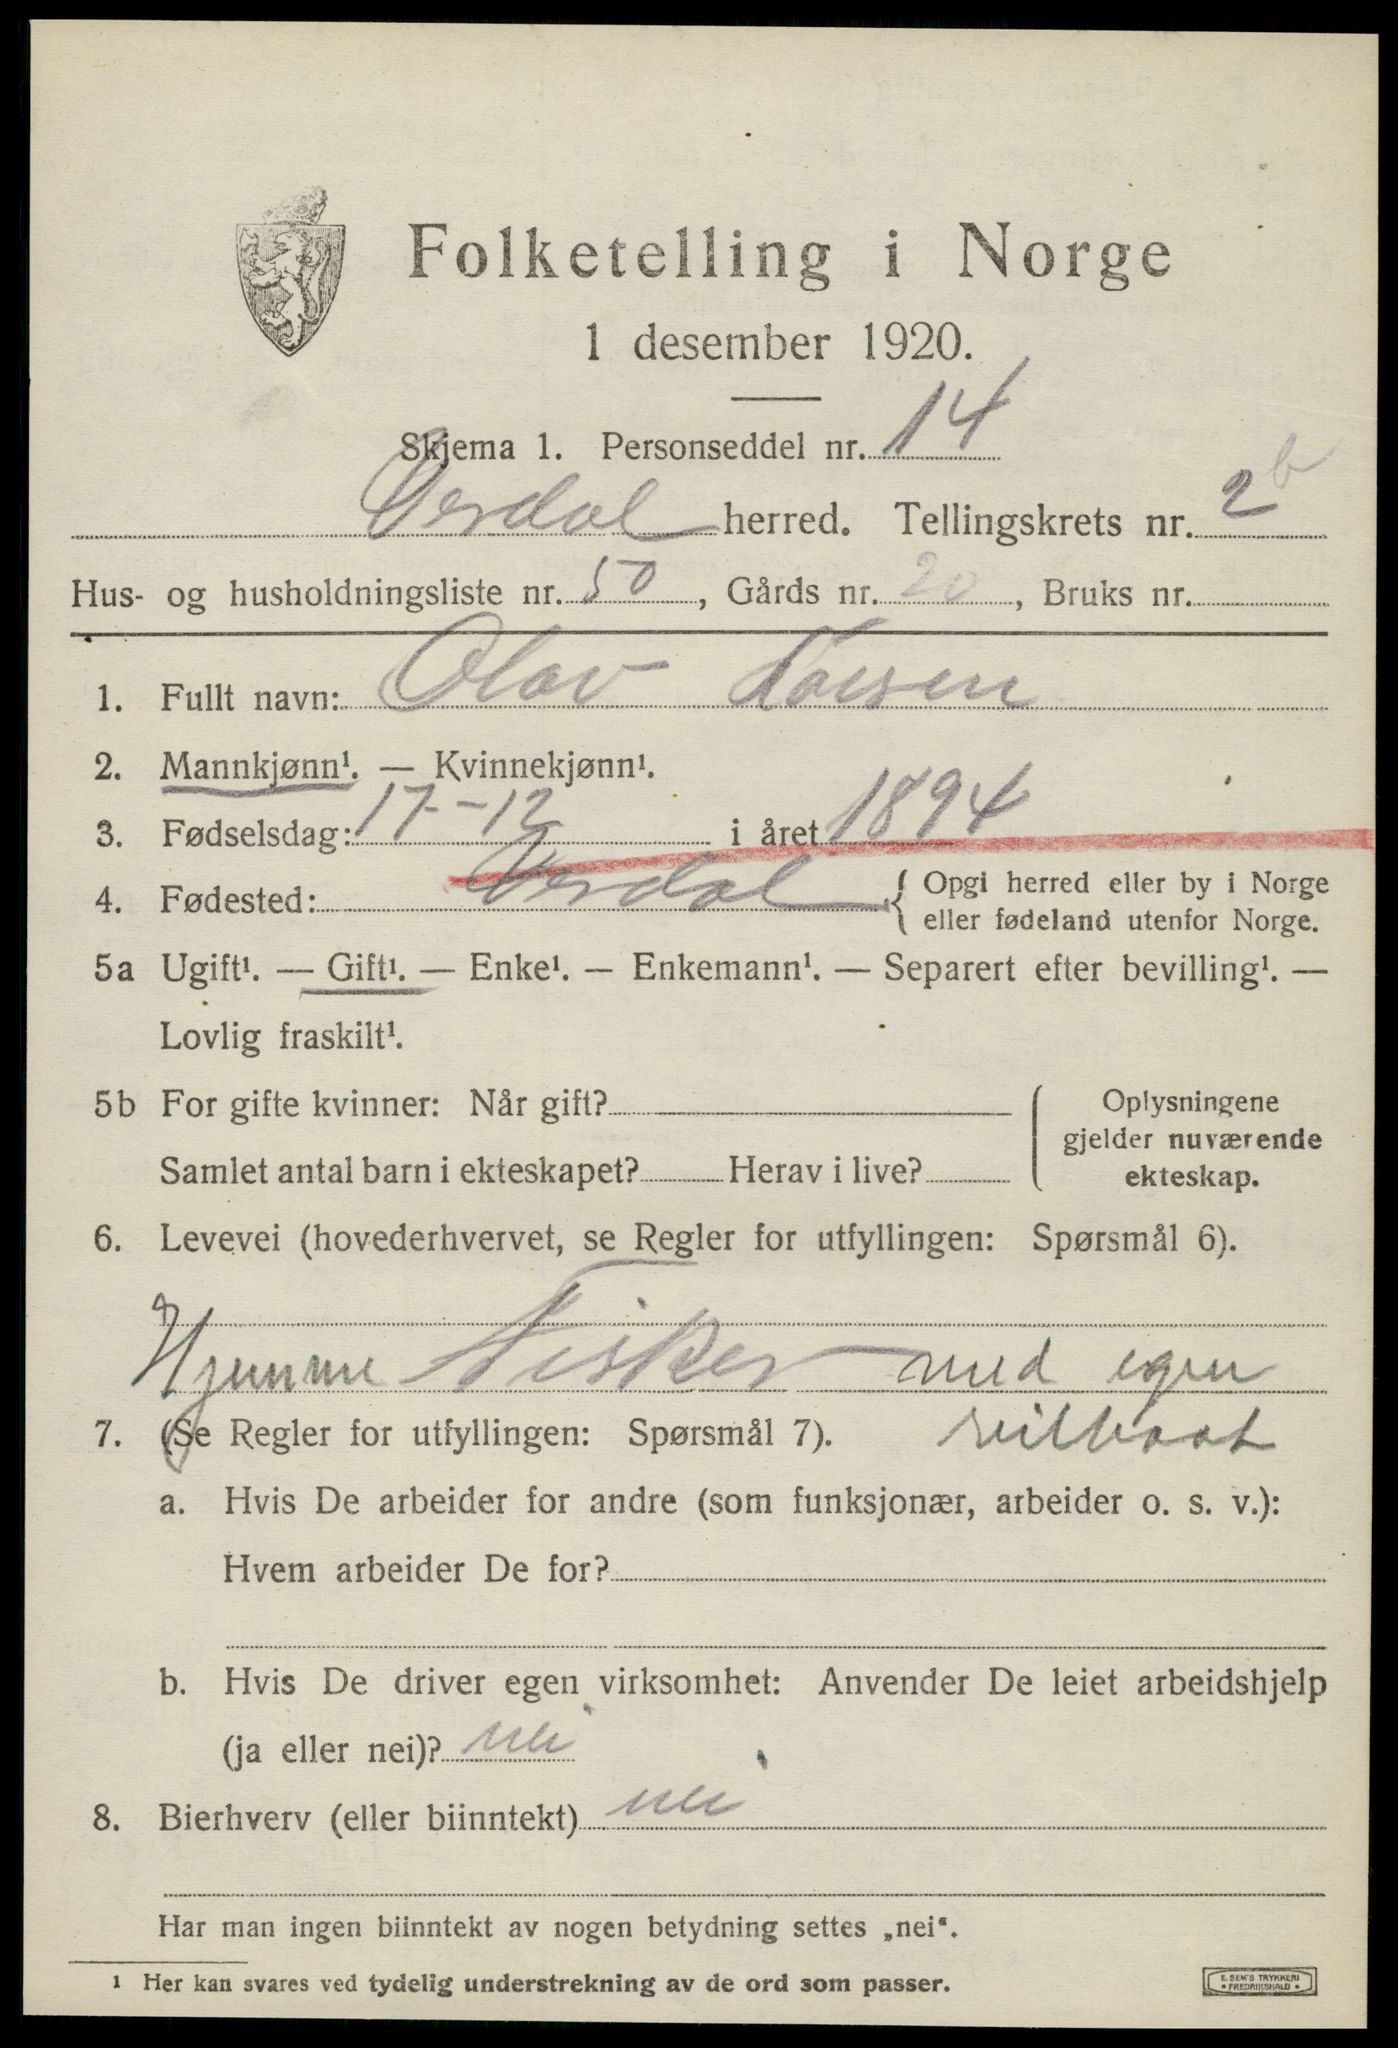 Folketelling i Norge
1 desember 1920.
Skjema 1. Personseddel nr. 14
Verdal herred. Tellingskrets nr. 2 b
Hus- og husholdningsliste nr. 50, Gårds nr. 20, Bruks nr.
1. Fullt navn: Olav
2. Mannkjønn¹. — Kvinnekjønn¹.
3. Fødselsdag: 17-12 i året 1894
4. Fødested: Verdal { Opgi herred eller by i Norge
eller fødeland utenfor Norge.
5a Ugift¹. — Gift¹. — Enke¹. — Enkemann¹. — Separert efter bevilling¹. —
Lovlig fraskilt¹.
5b For gifte kvinner: Når gift?
Samlet antal barn i ekteskapet? Herav i live?
Oplysningene
gjelder nuværende
ekteskap.
6. Levevei (hovederhvervet, se Regler for utfyllingen: Spørsmål 6).
Hjemme Fisker med egen
7. (Se Regler for utfyllingen: Spørsmål 7).
a. Hvis De arbeider for andre (som funksjonær, arbeider o. s. v.):
Hvem arbeider De for?
b. Hvis De driver egen virksomhet: Anvender De leiet arbeidshjelp
(ja eller nei)? nei
8. Bierhverv (eller biinntekt) nei
Har man ingen biinntekt av nogen betydning settes „nei“.
¹ Her kan svares ved tydelig understrekning av de ord som passer.
E. SEM'S TRYKKERI
• FREDRIKSHALD •